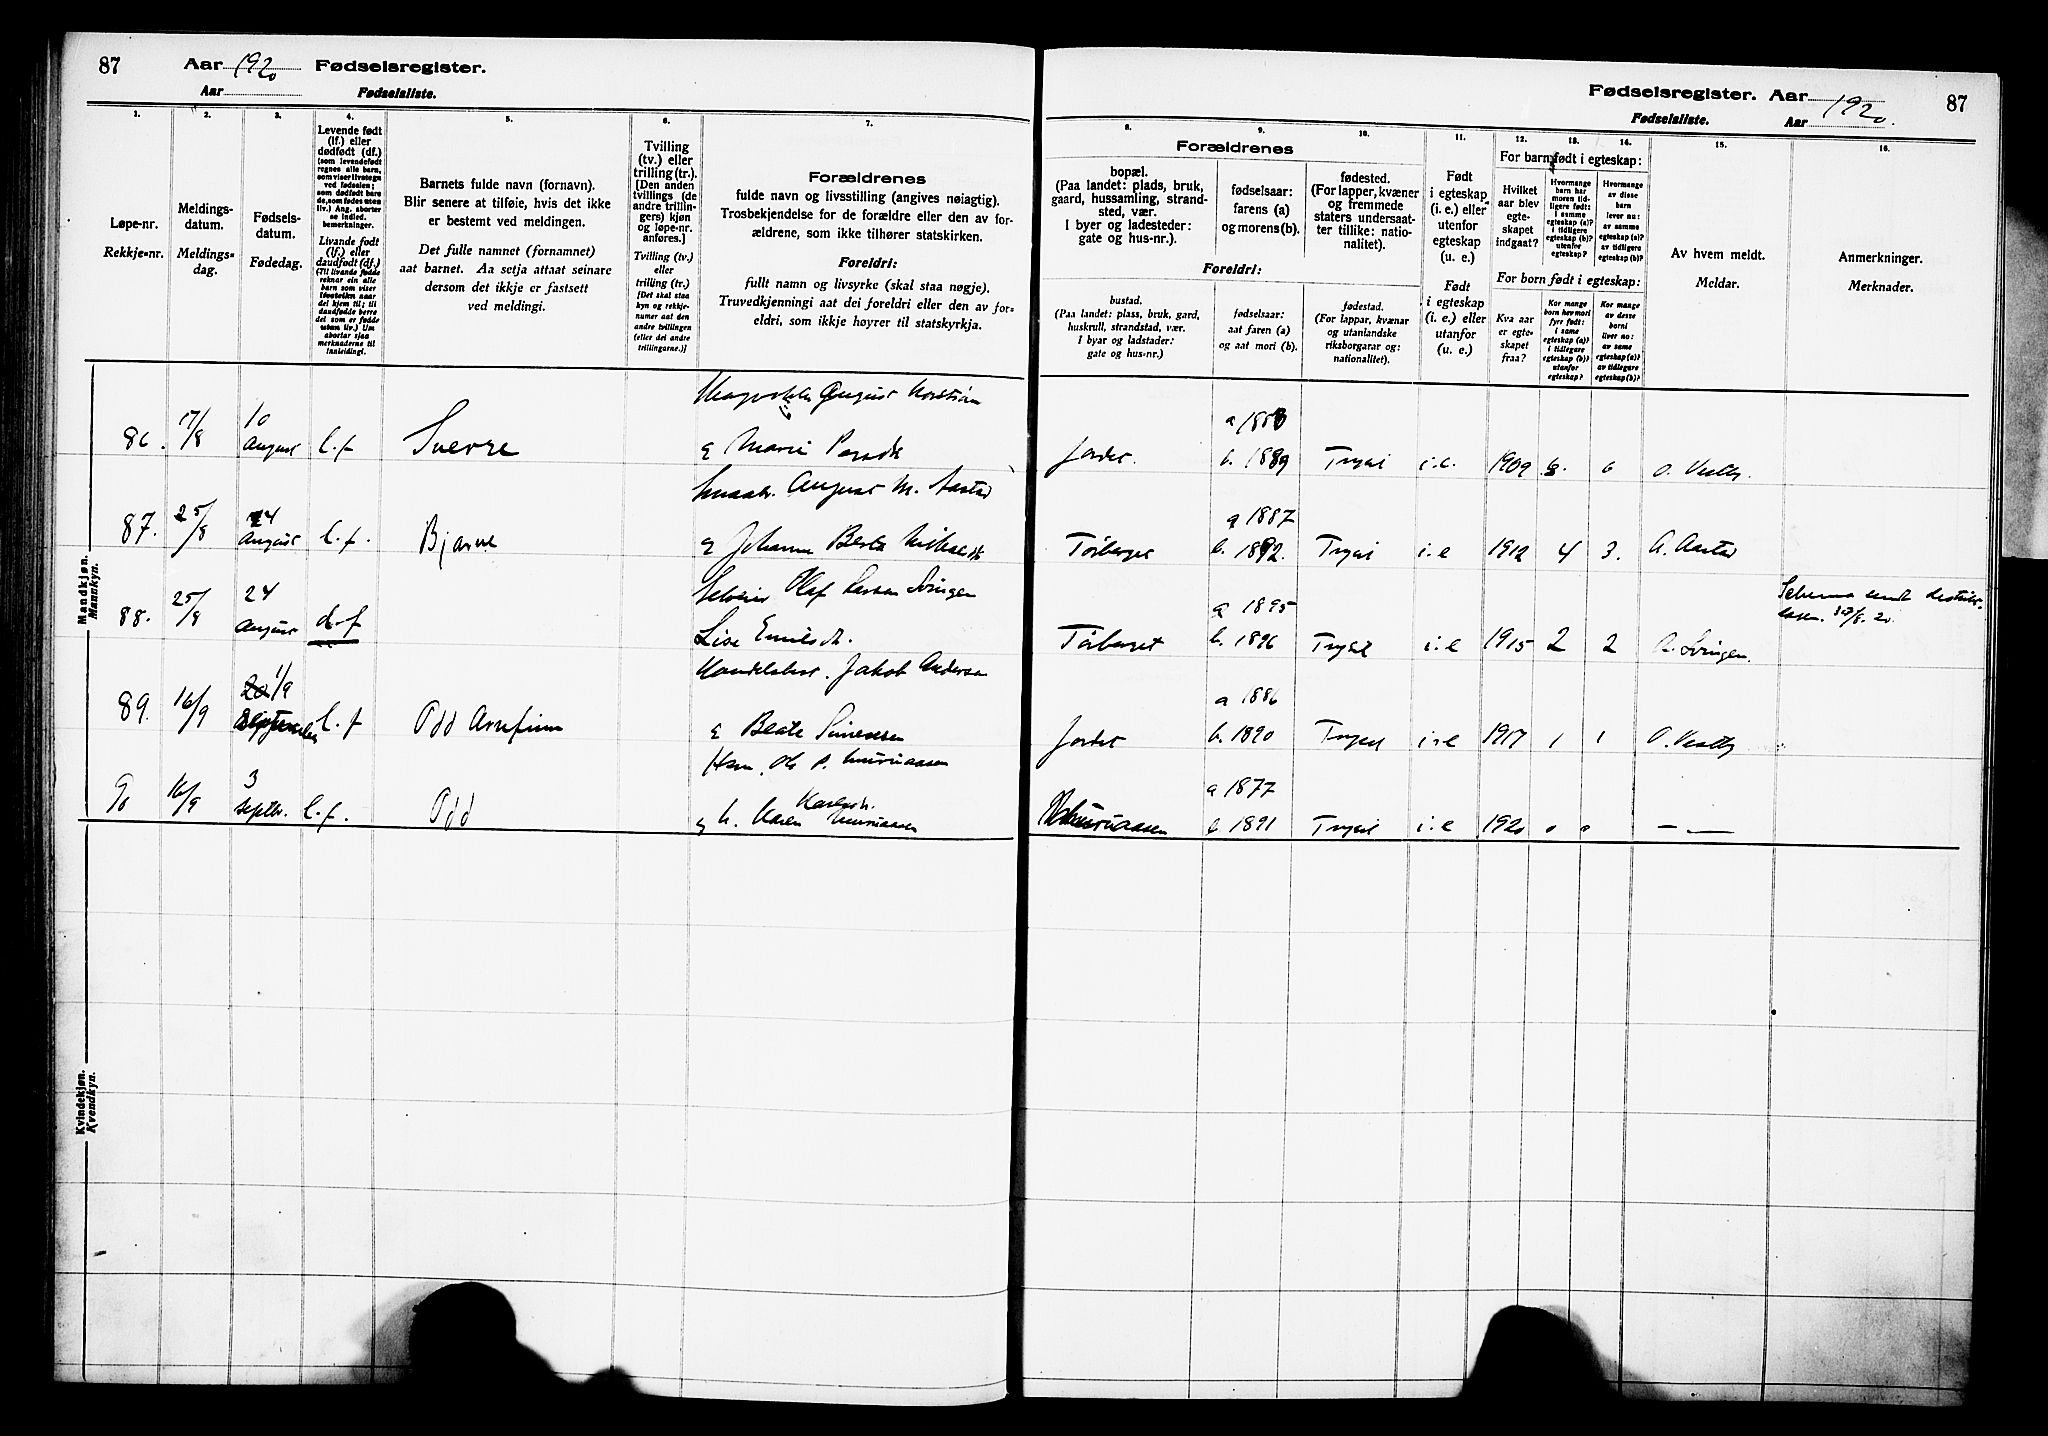 87 Aar 1920 Fødselsregister.
Aar Fødselsliste.
Fødselsregister. Aar 1920. 87
Fødselsliste. Aar
1. 2. 3. 4. 5. 6. 7.
Løpe-nr.
Rekkje-nr.
Meldings-
datum.
Meldings-
dag.
Fødsels-
datum.
Fødedag.
Levende født
(lf.) eller
dødfødt (df.)
(som levendefødt
regnes alle barn,
som viser livstegn
ved fødselen;
som dødfødt bare
de, som fødes uten
liv.) Ang. aborter
se indled.
bemerkninger.
Livande født
(lf.) eller
daudfødt (df.)
(Til livande fødde
reknar ein alle
born som viser
livsteikn naar
det kjem til; til
daudfødde berre
dei som er fødde
utan liv.) Um
abortar sjaa
merknaderne til
innleidingi.
Barnets fulde navn (fornavn).
Blir senere at tilføie, hvis det ikke
er bestemt ved meldingen.
Det fulle namnet (fornamnet)
aat barnet. Aa setja attaat seinare
dersom det ikkje er fastsett
ved meldingi.
Tvilling
(tv.) eller
trilling (tr.).
[Den anden
tvillings (de
andre trillin-
gers) kjøn
og løpe-nr.
anføres.]
Tvilling (tv.)
eller
trilling (tr.)
[Det skal staa
kyn og rekkje-
numer aat den
andre tvillingen
(eller dei andre
trillingarne.)]
Forældrenes
fulde navn og livsstilling (angives nøiagtig).
Trosbekjendelse for de forældre eller den av for-
ældrene, som ikke tilhører statskirken.
Foreldri:
fullt namn og livsyrke (skal staa nøgje).
Truvedkjenningi aat dei foreldri eller den av for-
eldri, som ikkje høyrer til statskyrkja.
8. 9. 10. 11. 12. 13. 14. 15. 16.
Forældrenes
bopæl.
(Paa landet: plads, bruk,
gaard, hussamling, strand-
sted, vær.
I byer og ladesteder:
gate og hus-nr.).
fødselsaar:
farens (a)
og morens (b).
fødested.
(For lapper, kvæner
og fremmede
staters undersaat-
ter tillike: natio-
nalitet).
Foreldri:
bustad.
(Paa landet: plass, bruk, gard,
huskrull, strandstad, vær.
I byar og ladstader:
gate og hus-nr.)
fødselsaar:
aat faren (a)
og aat mori (b).
fødestad.
(For lappar, kvænar
og utanlandske
riksborgarar og:
nationalitet).
Født
i egteskap
(i. e.) eller
utenfor
egteskap
(u. e.)
Født
i egteskap
(i. e.) eller
utanfor
(u. e.)
For barn født i egteskap:
Hvilket
aar blev
egte-
skapet
indgaat?
Hvormange
barn har
moren tid-
ligere født:
i samme
egteskap (a)?
i tidligere
egteskap (b)?
utenfor
egteskap?
Hvormange
av disse
barn
lever nu:
av samme
egteskap (a)?
av tidligere
egteskap (b)?
For born født i egteskap:
Kva aar
er egte-
skapet
fraa?
Kor mange
born hev mori
fyrr født:
i same
egteskap (a)?
i tidlegare
egteskap (b)?
utanfor
egteskap?
Kor mange
av desse
borni
liver no:
av same
egteskap (a)?
av tidlegare
egteskap (b)?
Av hvem meldt.
Meldar.
Anmerkninger.
Merknader.
Mandkjøn.
Mannkyn.
August
86. 17/8 10 August l.f Sverre & Marie
Jordet. b. 1889 Trysil i.e. 1909 6 O. Vestby.
August M. Aastad
87. 25/8 24 August l.f. Bjarne & Johanne
a 1887
b. 1892. Trysil i.e 1912 4 3. A. Aastad
Olaf Larsen
88. 25/8 24 August d.f Lise
a 1895
b. 1896 Trysil i.e 1915 2 2
Jakob Andersen
89. 16/9 1/9 l.f Odd Arnfinn & Beate
a 1886
Jordet b. 1890 Trysil i.e 1917 1 1 O. Vestby
90 16/9 3 septbr. l.f. Odd & h. Karen
a 1877
b 1891 Trysil i.e 1920 0 0 — —
Kvindekjøn.
Kvendkyn.